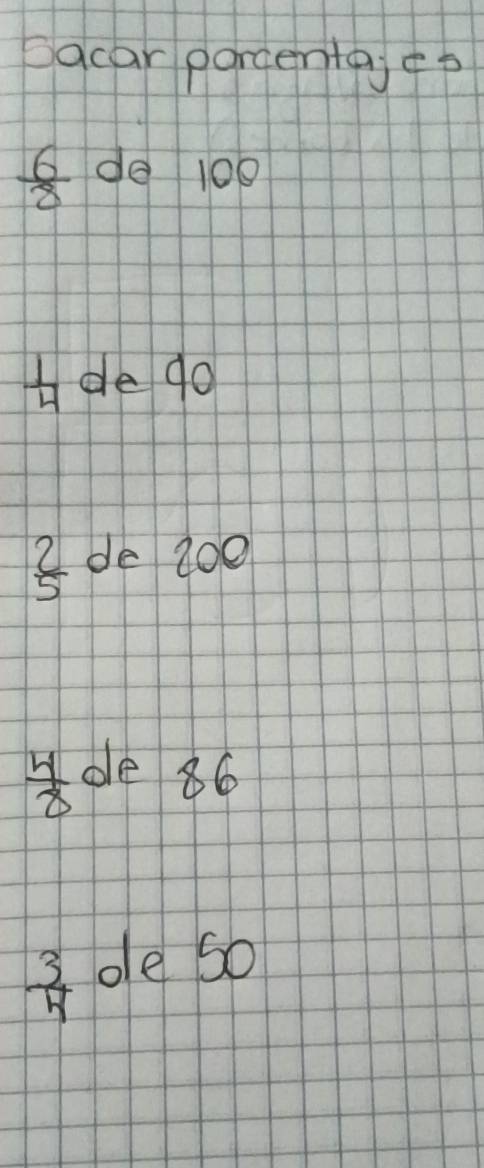 Sacar porcentajes
6/8 de 100
1/4 de 90
2/5 de 200
4/8 de 86
3/4 de 50